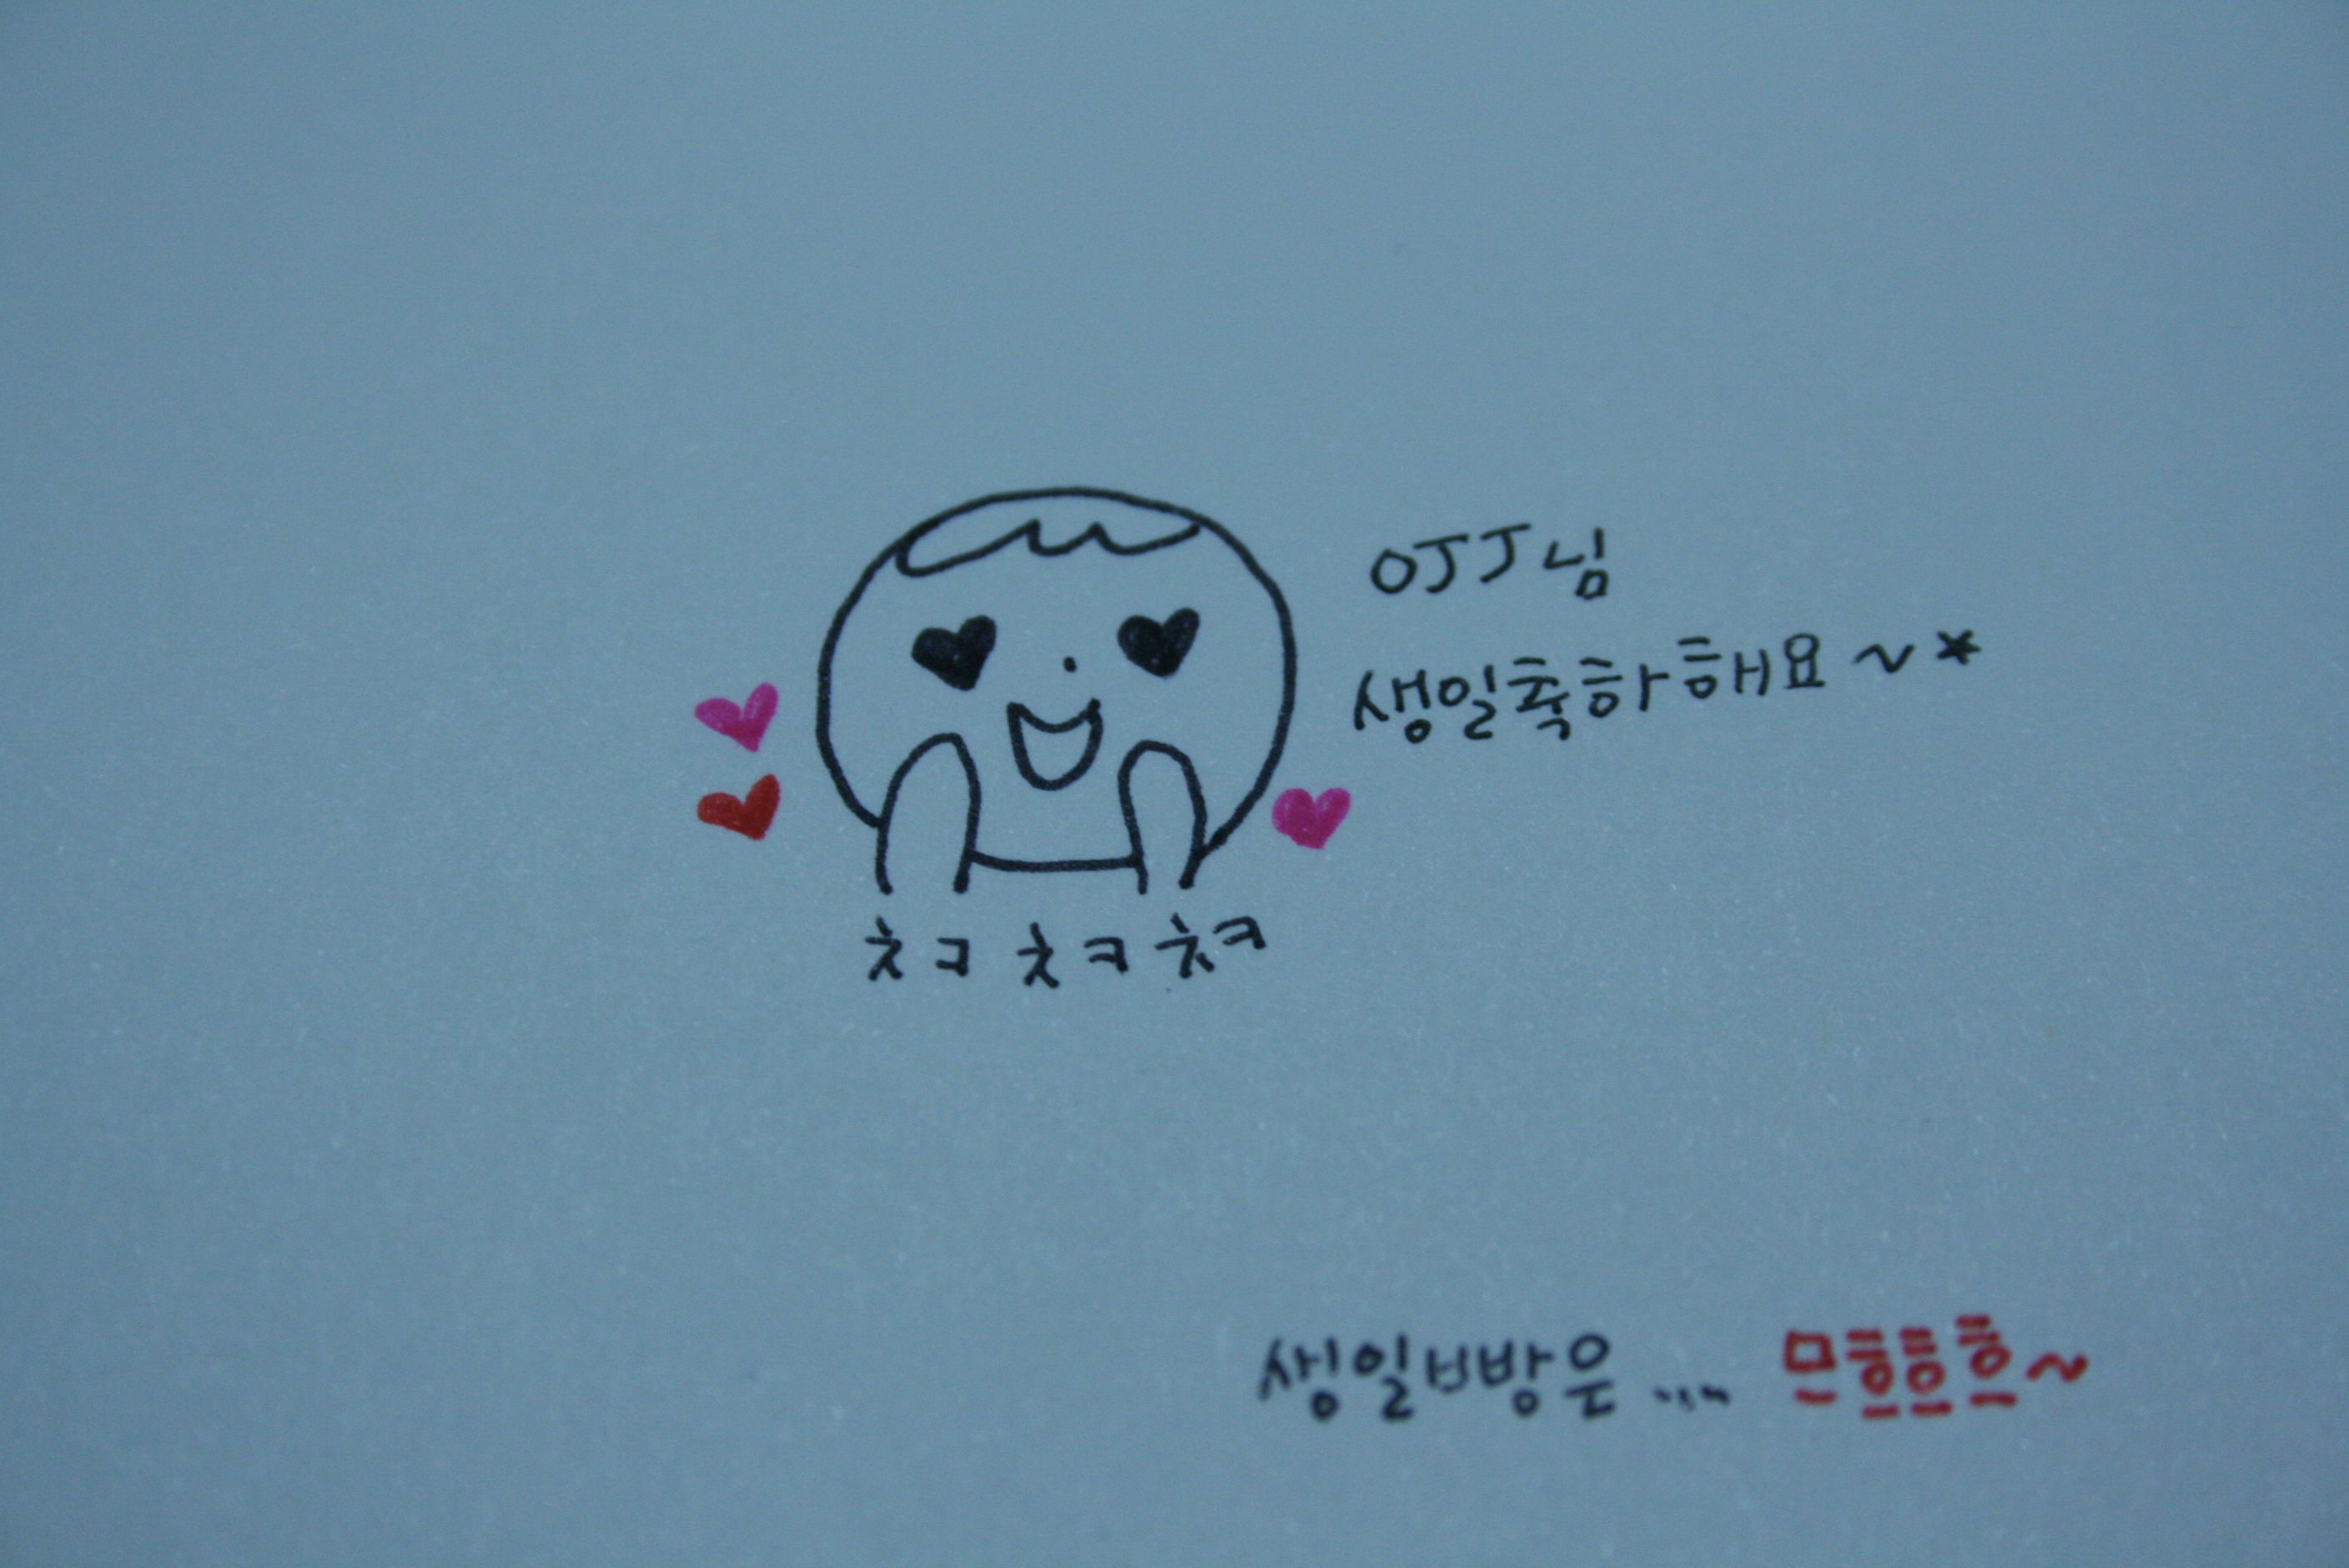 OJJ님
생일축하해요~*
ㅊㅋㅊㅋㅊㅋ
생일빵은... 므흐흐흐~